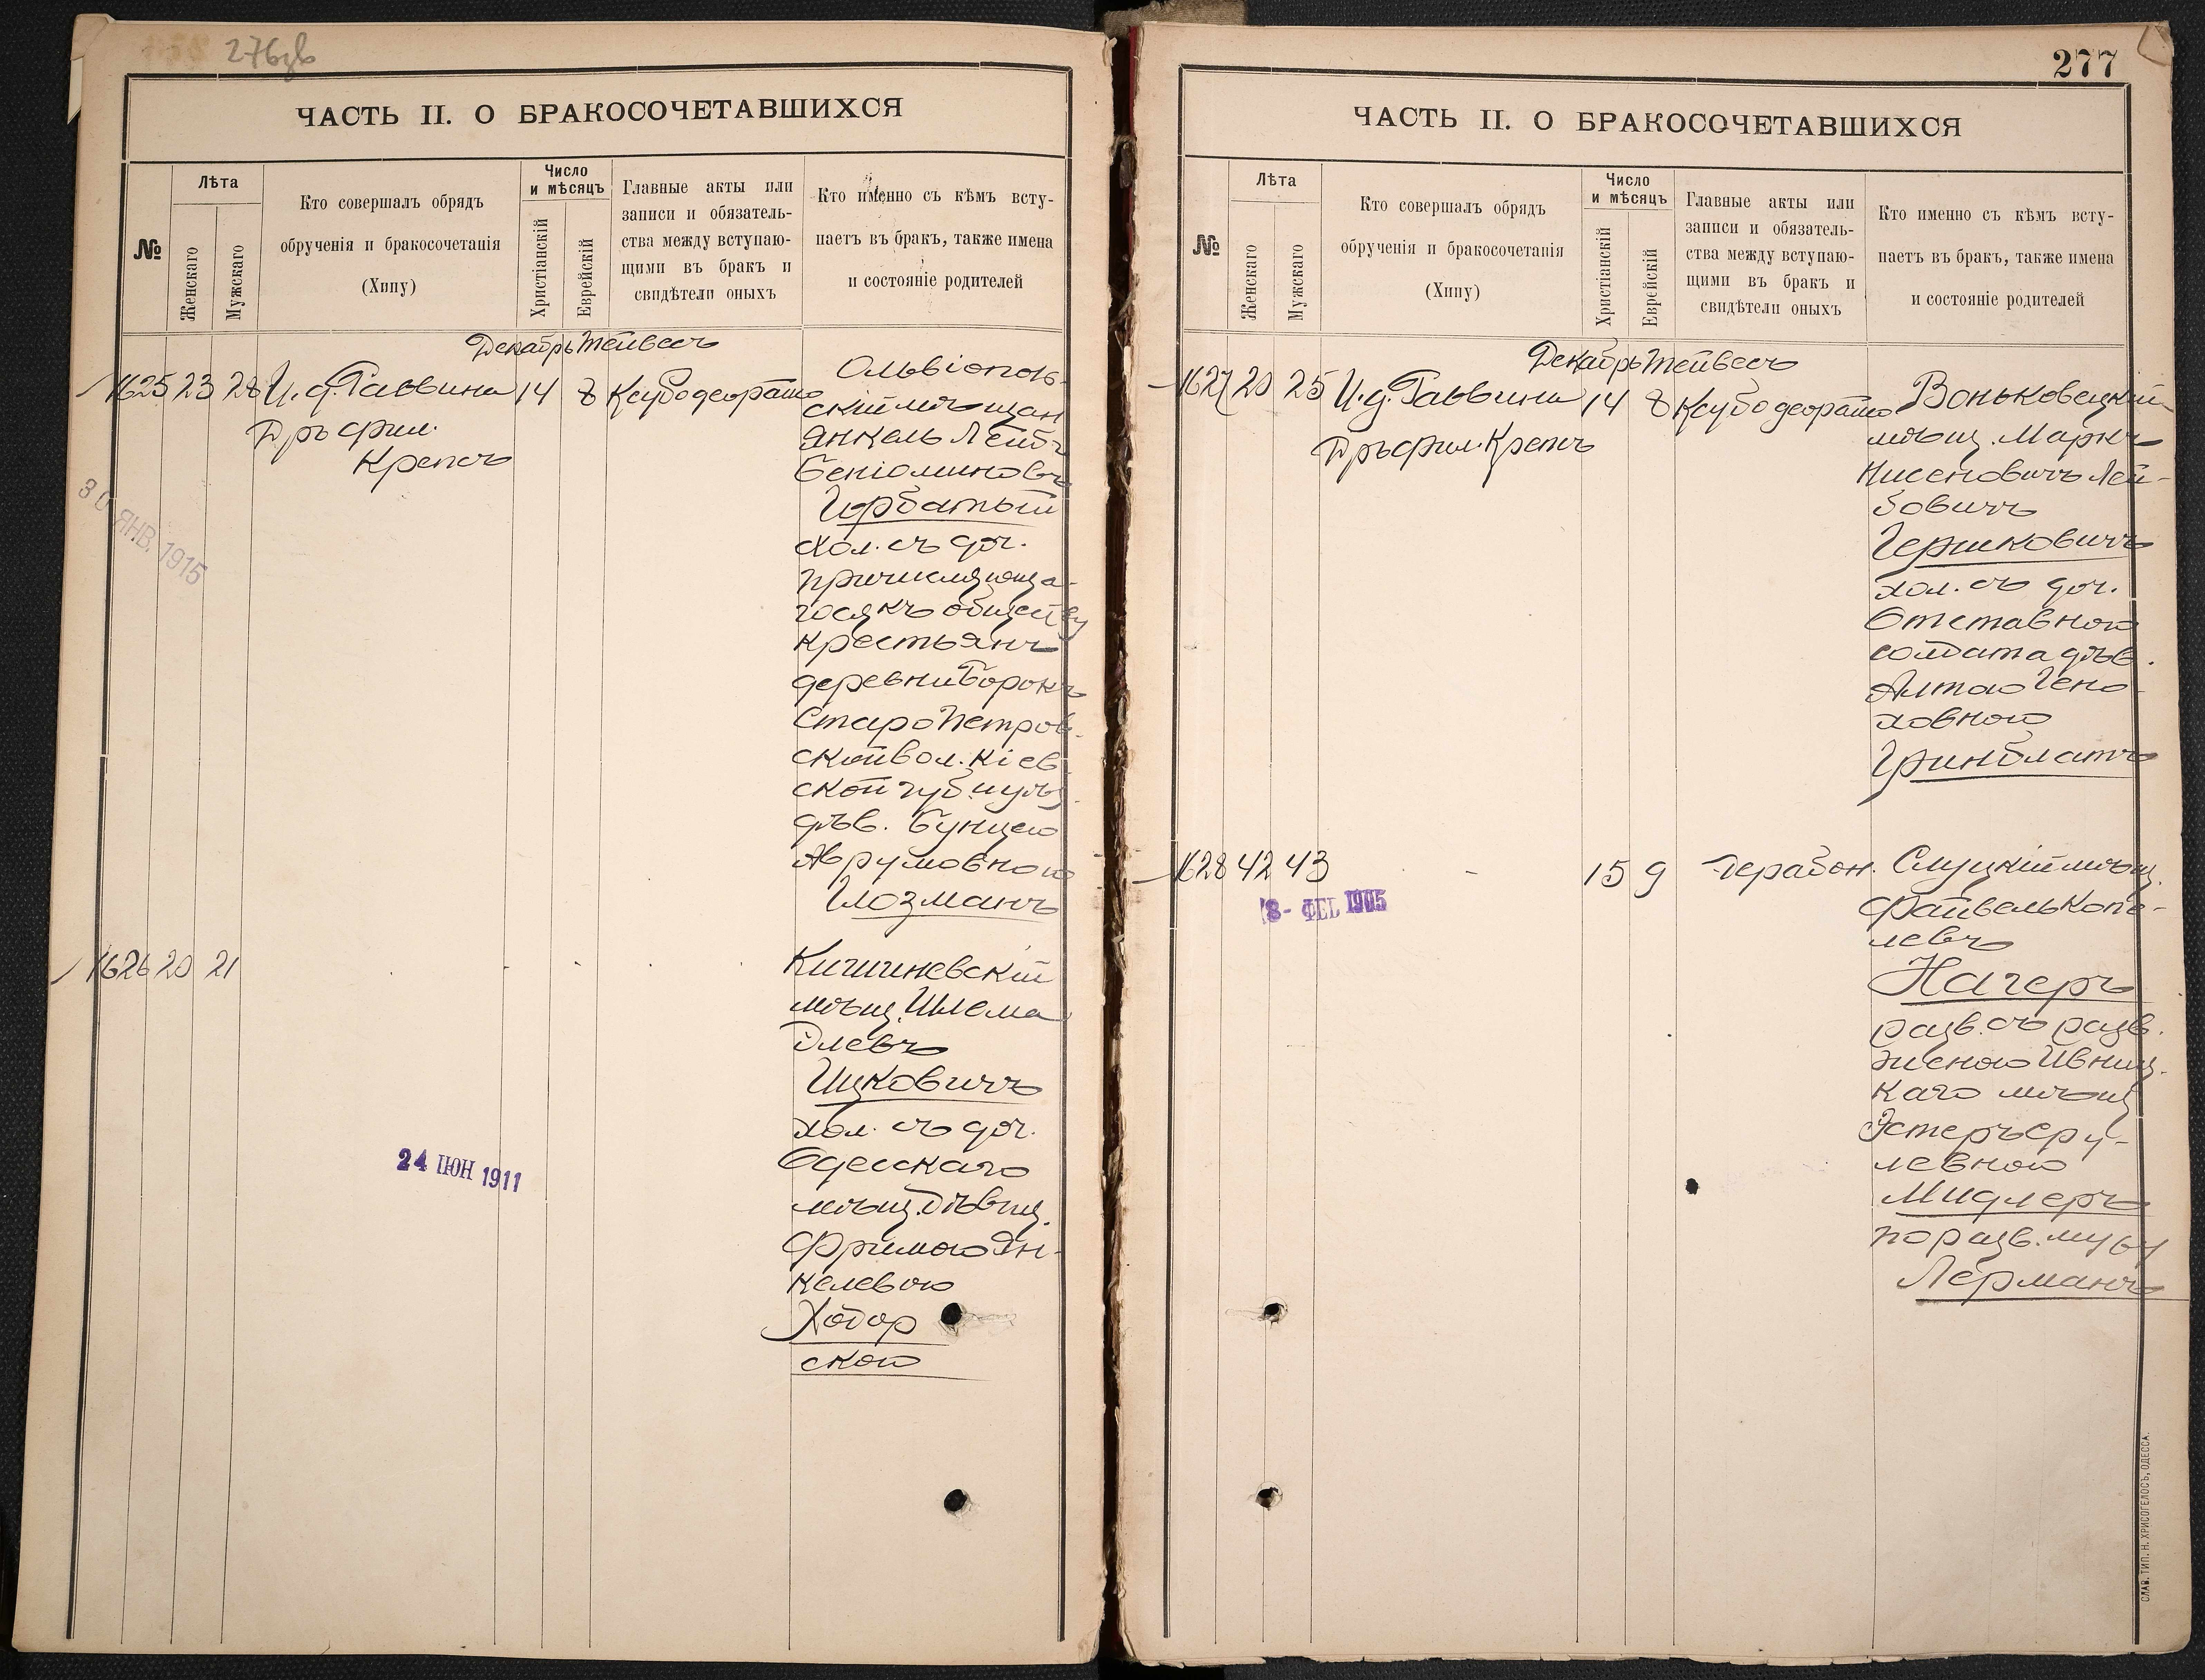 276зв
ЧАСТЬ II. О БРАКОСОЧЕТАВШИХСЯ
№
Лѣта
Женскаго
Мужскаго
Кто совершалъ обрядъ
обрученія и бракосочетанія
(Хипу)
Число
и мѣсяцъ
Христіанскій
Еврейскій
Главные акты или
записи и обязатель-
ства между вступаю-
щими въ бракъ и
свидѣтели оныхъ
Кто именно съ кѣмъ всту-
паетъ въ бракъ, также имена
и состояніе родителей
Декабрь Тейвесъ
1625 23 28 И. д. Раввина 14 8 Ксубо деорайто
Дръ фил.
Крепсъ
Ольвіополь-
скій мѣщан
Янкель Лейбъ
Беніоминовъ
Горбатый
хол. съ доч.
причисляюща-
гося къ обществу
крестьянъ
деревни Борокъ
Старо Петров-
ской вол. Кіев-
ской губ. и уѣз.
дѣв. Бунцею
Аврумовною
Глозманъ
30 ЯНВ. 1915
1626 20 21
Кишиневскій
мѣщ. Шлема
Элевъ
Ицковичъ
хол. съ доч.
Одесскаго
мѣщ. дѣвиц.
Фримою Ян-
келевою
Ходор
скою
24 ІЮН 1911
277
ЧАСТЬ II. О БРАКОСОЧЕТАВШИХСЯ
№
Лѣта
Женскаго
Мужскаго
Кто совершалъ обрядъ
обрученія и бракосочетанія
(Хипу)
Число
и мѣсяцъ
Христіанскій
Еврейскій
Главные акты или
записи и обязатель-
ства между вступаю-
щими въ бракъ и
свидѣтели оныхъ
Кто именно съ кѣмъ всту-
паетъ въ бракъ, также имена
и состояніе родителей
Декабрь Тейвесъ
1627 20 25 И. д. Раввина 14 8 Ксубо деорайто
Дръ фил. Крепсъ
Воньковецкій
мѣщ. Маркъ
Нисеновичъ Лей-
бовичъ
Гершковичъ
хол. съ доч.
Отставного
солдата дѣв.
Алтою Гено-
ховною
Гринблатъ
1628 42 43 15 9 дерабон.
8- ФЕВ 1905
Слуцкій мѣщ.
Файвель Копе-
левъ
Нагеръ
разв. съ разв.
женою Ивниц-
каго мѣщ
Эстеръ Сру-
левною
Мидлеръ
по разв. мужу
Лерманъ
СЛАВ. ТИП. Н. ХРИСОГЕЛОСЪ, ОДЕССА.